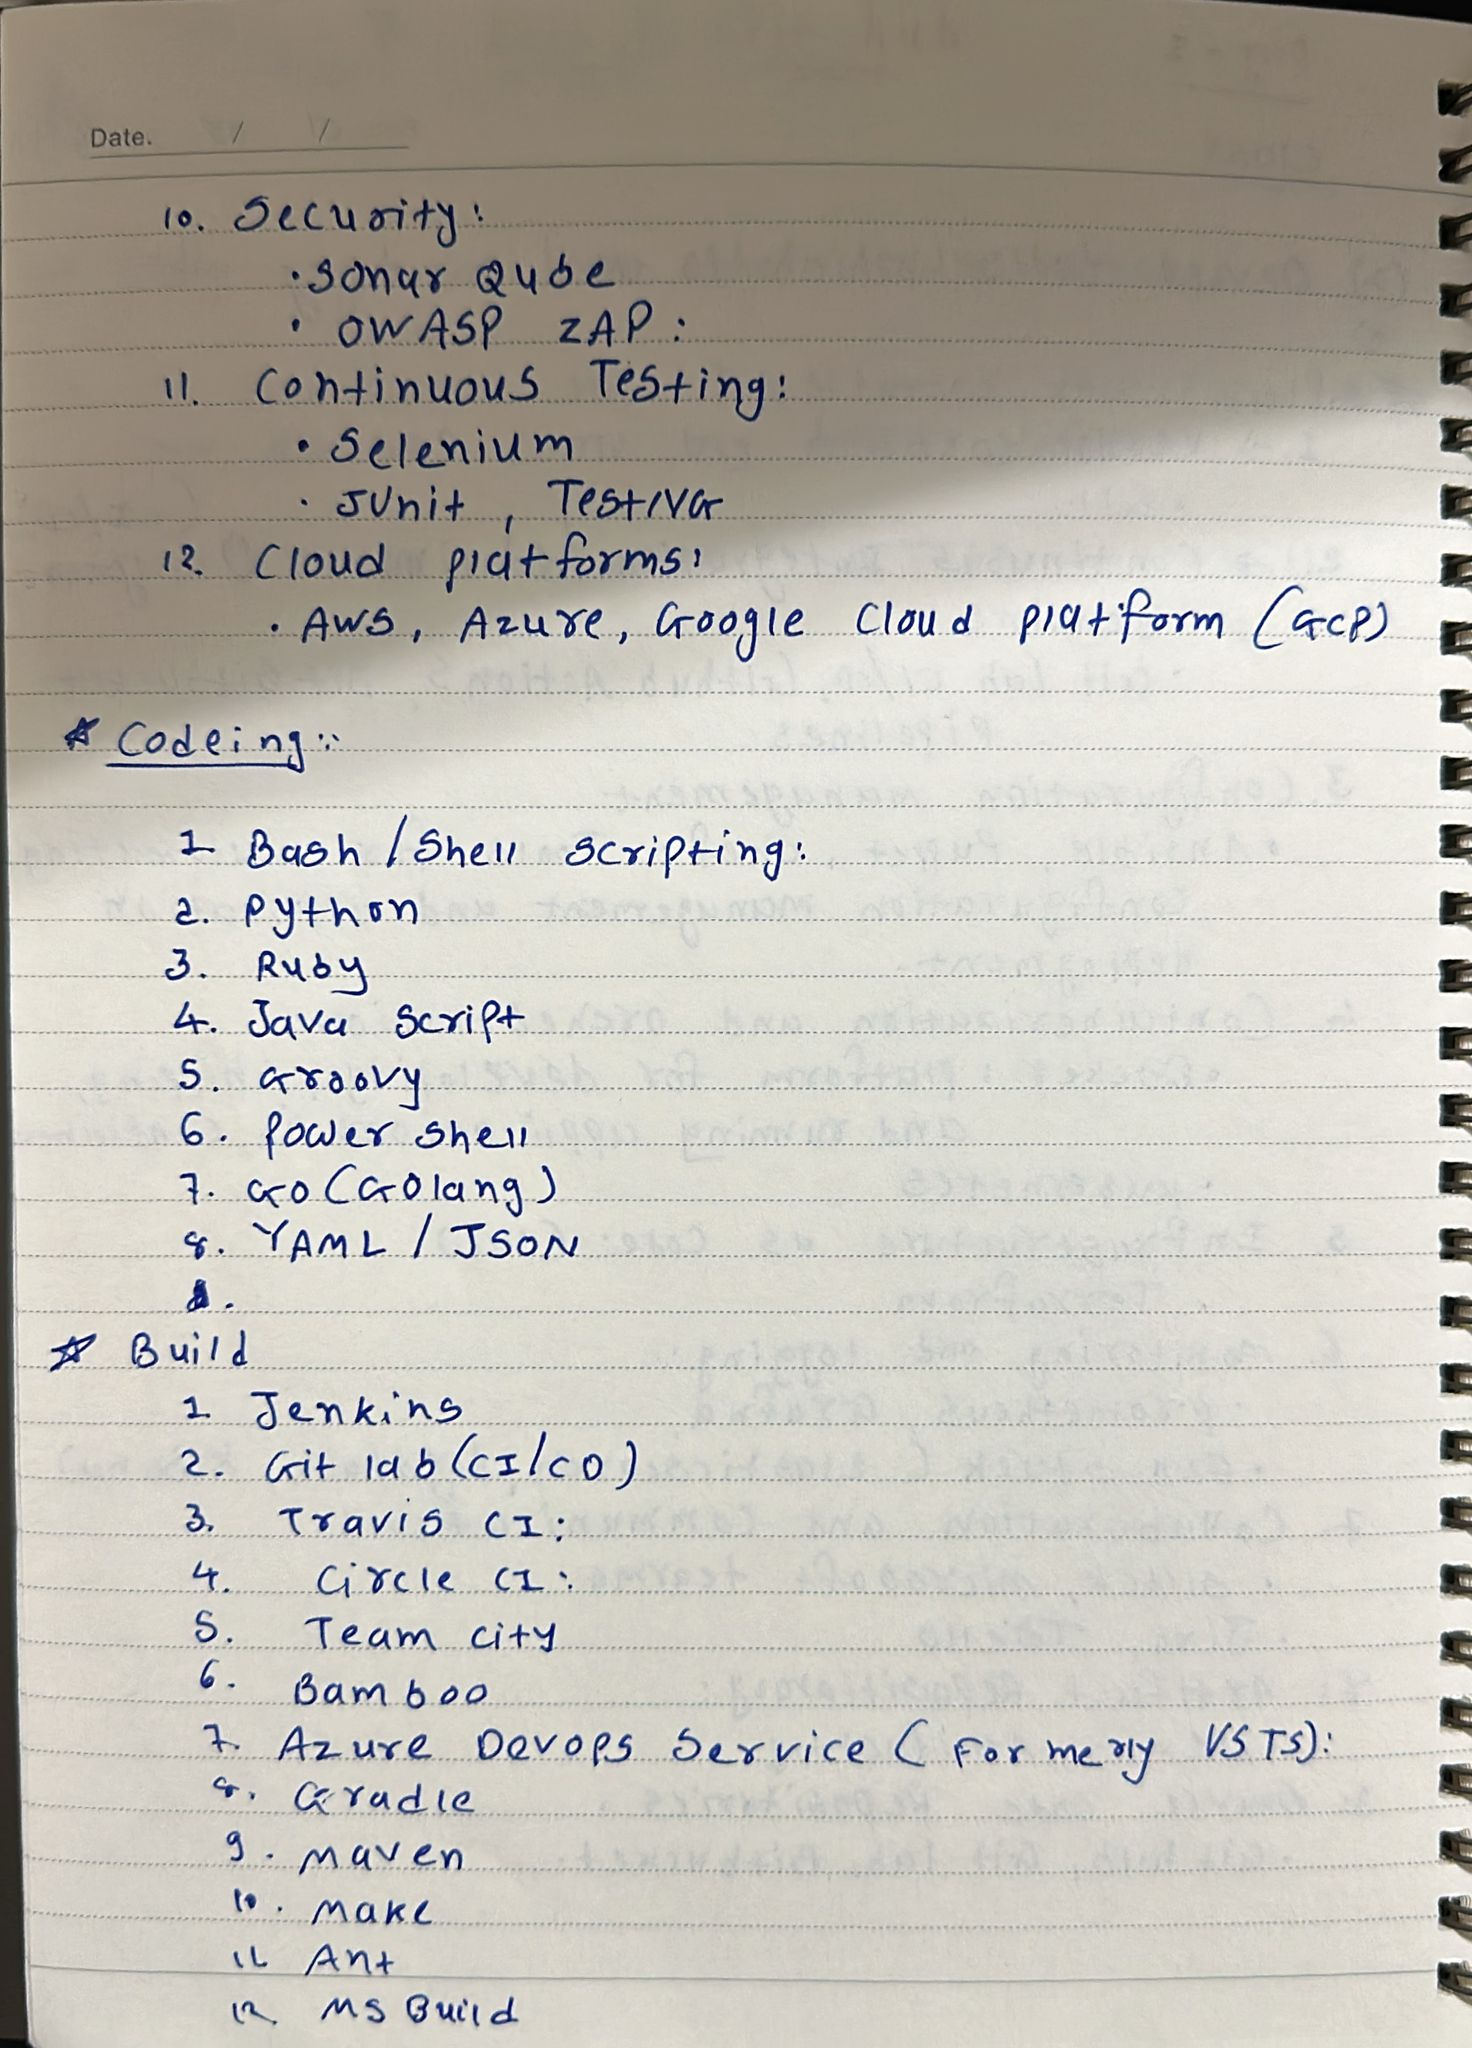 Date. / /
10. Security:
• Sonar Qube
• OWASP ZAP:
11. Continuous Testing:
• Selenium
• JUnit, TestNG
12. Cloud platforms:
• AWS, Azure, Google Cloud platform (GCP)
* Codeing:
1 Bash / Shell scripting:
2. Python
3. Ruby
4. Java script
5. Groovy
6. Power shell
7. GO (GOlang)
8. YAML / JSON
* Build
1 Jenkins
2. Git lab (CI/CD)
3. Travis CI:
4. Circle CI:
5. Team city
6. Bamboo
7. Azure Devops Service (Formerly VSTS):
8. Gradle
9. Maven
10. Make
11 Ant
12 MS Build